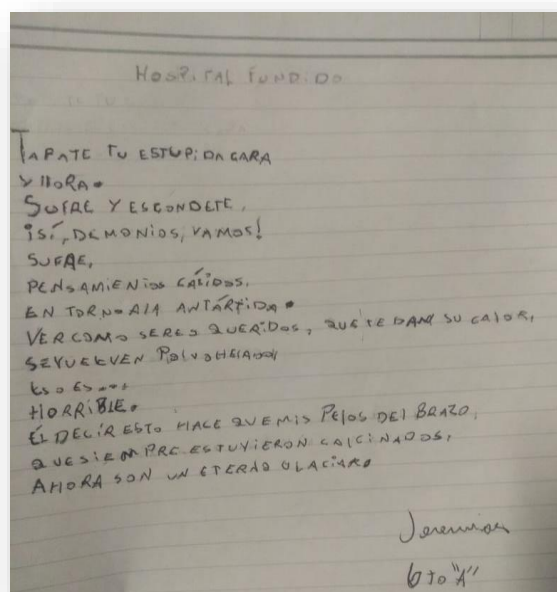 HOSPITAL FUNDIDO
TAPATE TU ESTUPIDA CARA
Y LLORA.
SUFRE Y ESCONDETE,
¡SÍ, DEMONIOS, VAMOS!
SUFRE,
PENSAMIENTOS CÁLIDOS,
EN TORNO A LA ANTÁRTIDA.
VER COMO SERES QUERIDOS, QUE TE DAN SU CALOR,
SE VUELVEN POLVO HELADO,
ESO ES....
HORRIBLE.
ÉL DECIR ESTO HACE QUE MIS PELOS DEL BRAZO,
QUE SIEMPRE ESTUVIERON CALCINADOS,
AHORA SON UN ETERNO GLACIAR.
Jeremias
6to "A"